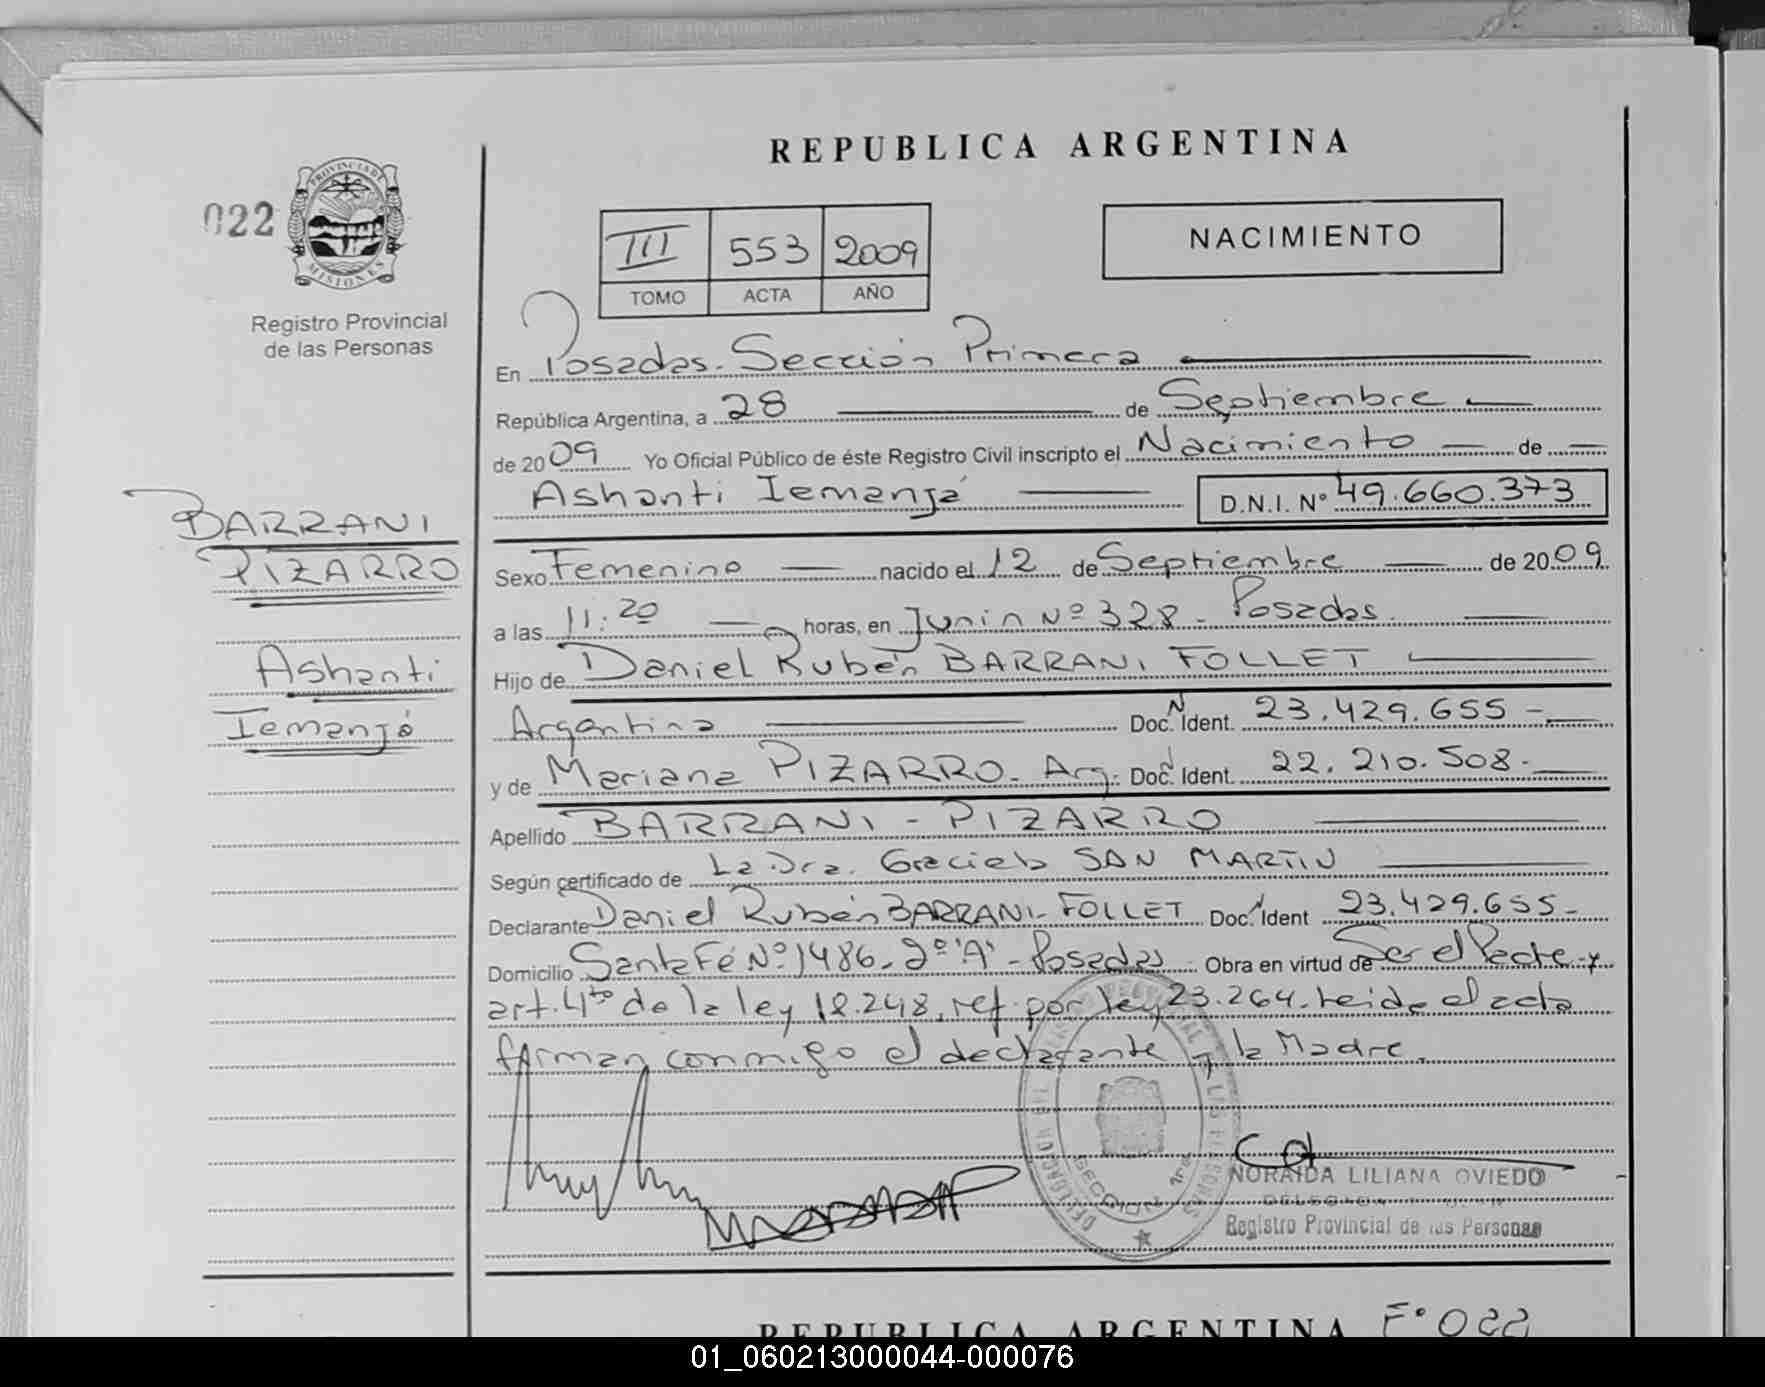 REPUBLICA ARGENTINA
022
PROVINCIA DE
MISIONES
Registro Provincial
de las Personas
III 553 2009
TOMO ACTA AÑO
NACIMIENTO
En Posadas. Sección Primera
República Argentina, a 28 de Septiembre
de 2009 Yo Oficial Público de éste Registro Civil inscripto el Nacimiento de
Ashanti Iemanjá D.N.I. Nº 49.660.373
BARRANI
PIZARRO
Ashanti
Iemanjá
Sexo Femenino nacido el 12 de Septiembre de 2009
a las 11:20 horas, en Junin Nº 328 - Posadas.
Hijo de Daniel Rubén BARRANI FOLLET
Argentina Doc. N Ident. 23.429.655 -
y de Mariana PIZARRO. Arg. Doc. Ident. 22.210.508.-
Apellido BARRANI - PIZARRO
Según certificado de La Dra. Graciela SAN MARTIN
Declarante Daniel Rubén BARRANI - FOLLET Doc. Ident 23.429.655 -
Domicilio Santa Fé Nº 1486 - 2º "A" - Posadas Obra en virtud de Ser el Padre y
art. 4to de la ley 18.248, ref. por ley 23.264. Leida el acta
firman conmigo el declarante y la Madre.
SECCION 1ra
NORAIDA LILIANA OVIEDO
DELEGADA
Registro Provincial de las Personas
REPUBLICA ARGENTINA Fº 022
01_060213000044-000076